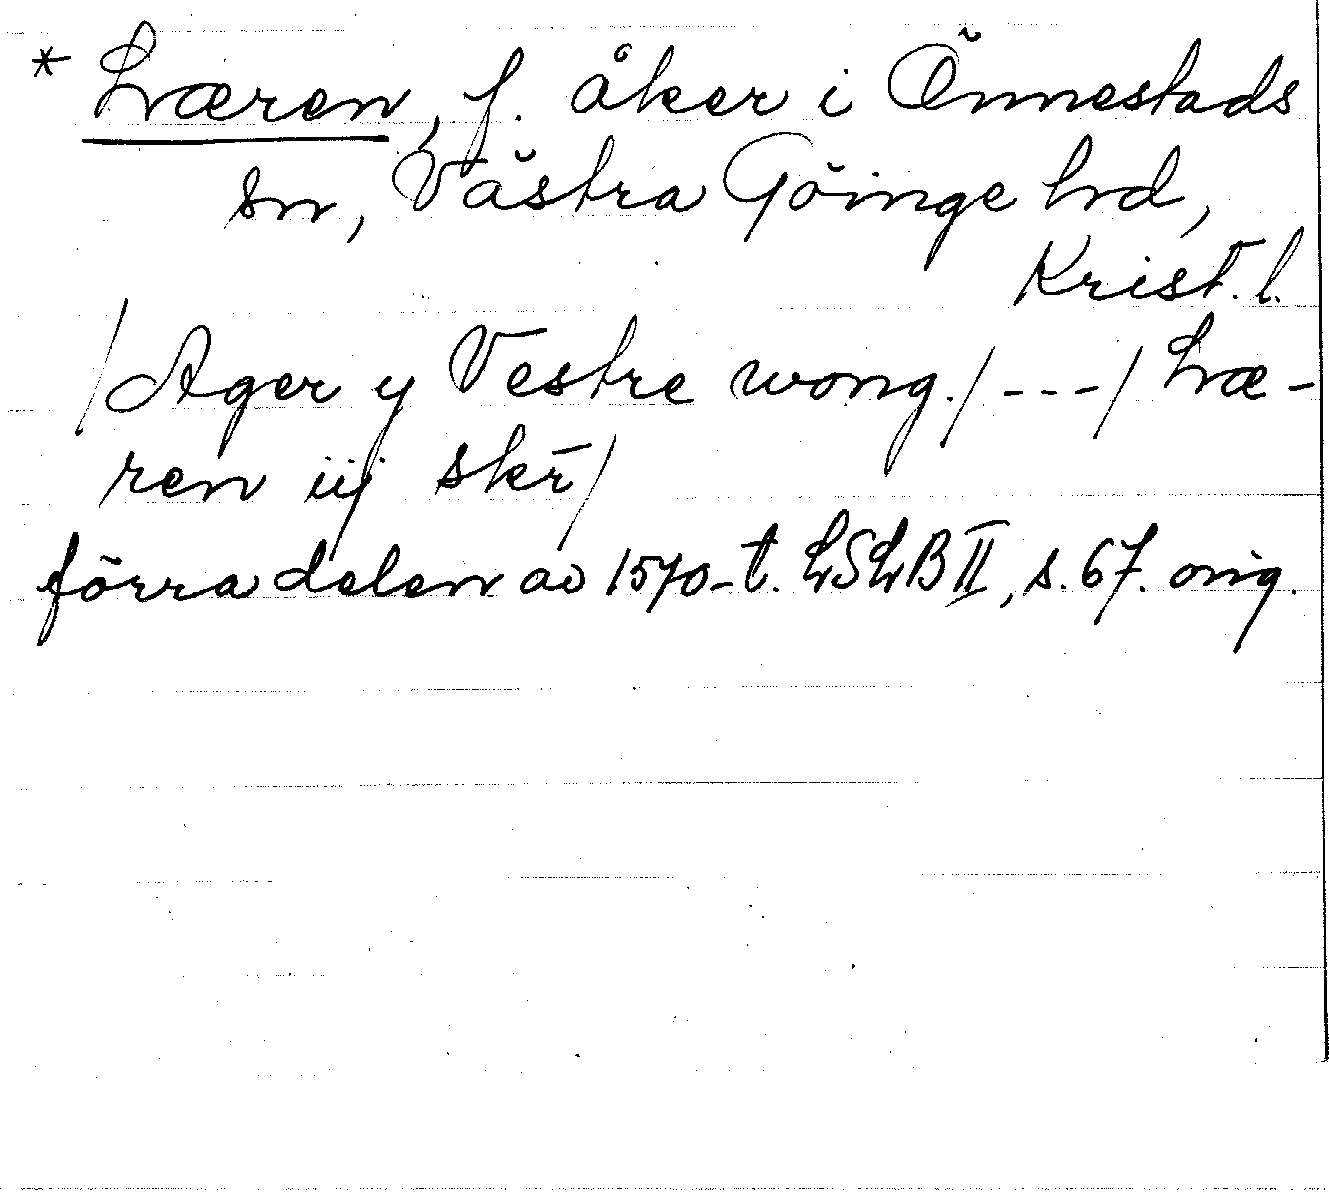 * Læren, f. åker i Önnestads
sn, Västra Göinge hd,
Krist. l.
/Ager y Vestre wong./---/ Læ-
ren iij skr̄/
förra delen av 1570-t. LSLB II, s. 67. orig.